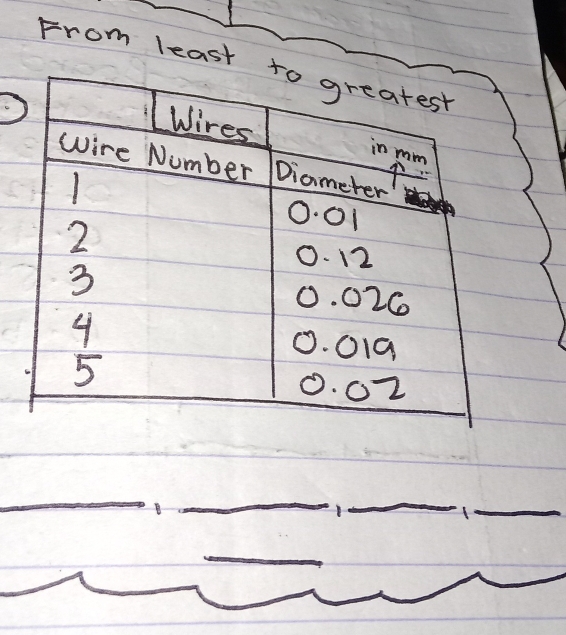 From least to greatest
Wires
in mm
Wire Number Diameter
1 0.01
2 0.12
3 0.026
4 0.019
5 0.02